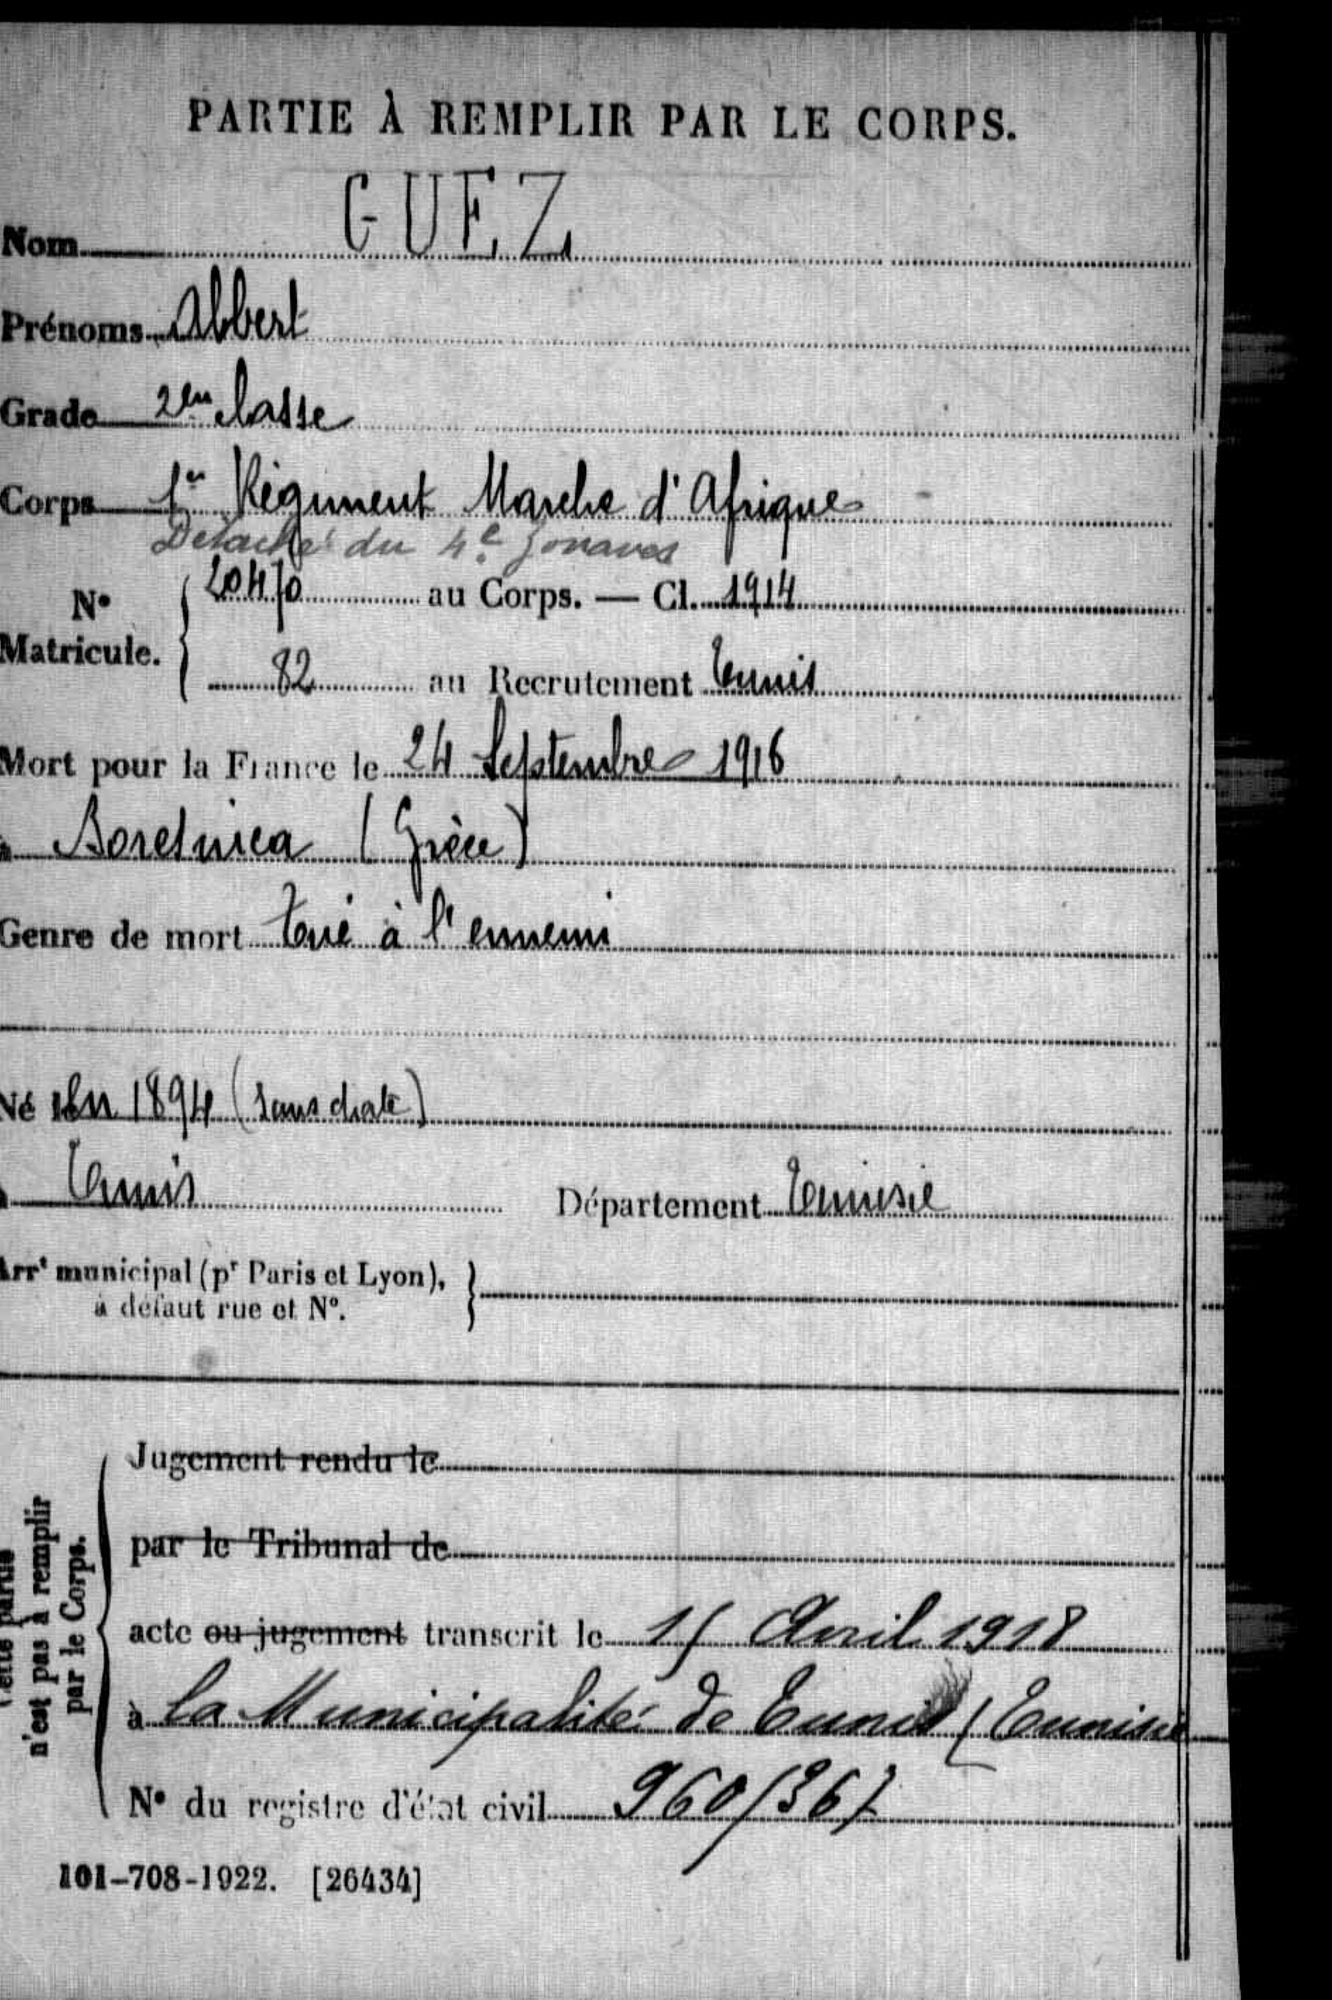 PARTIE À REMPLIR PAR LE CORPS.
Nom GUEZ
Prénoms Albert
Grade 2em classe
Corps 1er Régiment Marche d'Afrique
Détaché du 4e Zouaves
N° Matricule. 20470 au Corps. — Cl. 1914
82 au Recrutement Tunis
Mort pour la France le 24 Septembre 1916
à Boresnica (Grèce)
Genre de mort tué à l'ennemi
Né en 1894 (sans date)
à Tunis Département Tunisie
Arrt municipal (pr Paris et Lyon),
à défaut rue et N°.
Cette partie
n'est pas à remplir
par le Corps.
Jugement rendu le
par le Tribunal de
acte ou jugement transcrit le 15 Avril 1918
à la Municipalité de Tunis (Tunisie
N° du registre d'état civil 960/367
101-708-1922. [26434]